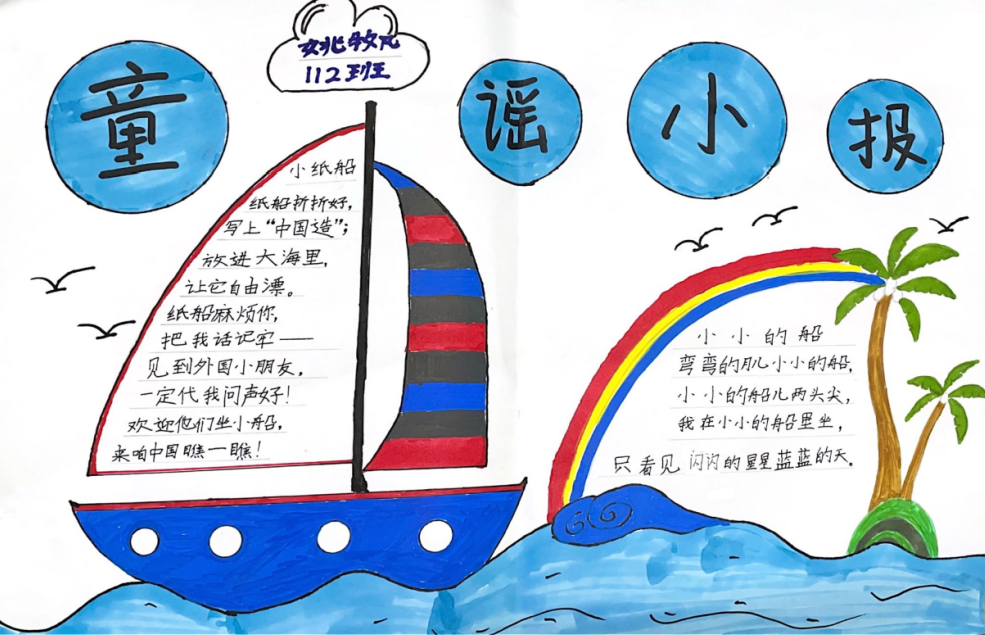 童谣小报
姚牧凡
112班
小纸船
纸船折折好，
写上“中国造”；
放进大海里，
让它自由漂。
纸船麻烦你，
把我话记牢——
见到外国小朋友，
一定代我问声好！
欢迎他们坐小船，
来咱中国瞧一瞧！
小小的船
弯弯的月儿小小的船，
小小的船儿两头尖，
我在小小的船里坐，
只看见闪闪的星星蓝蓝的天。